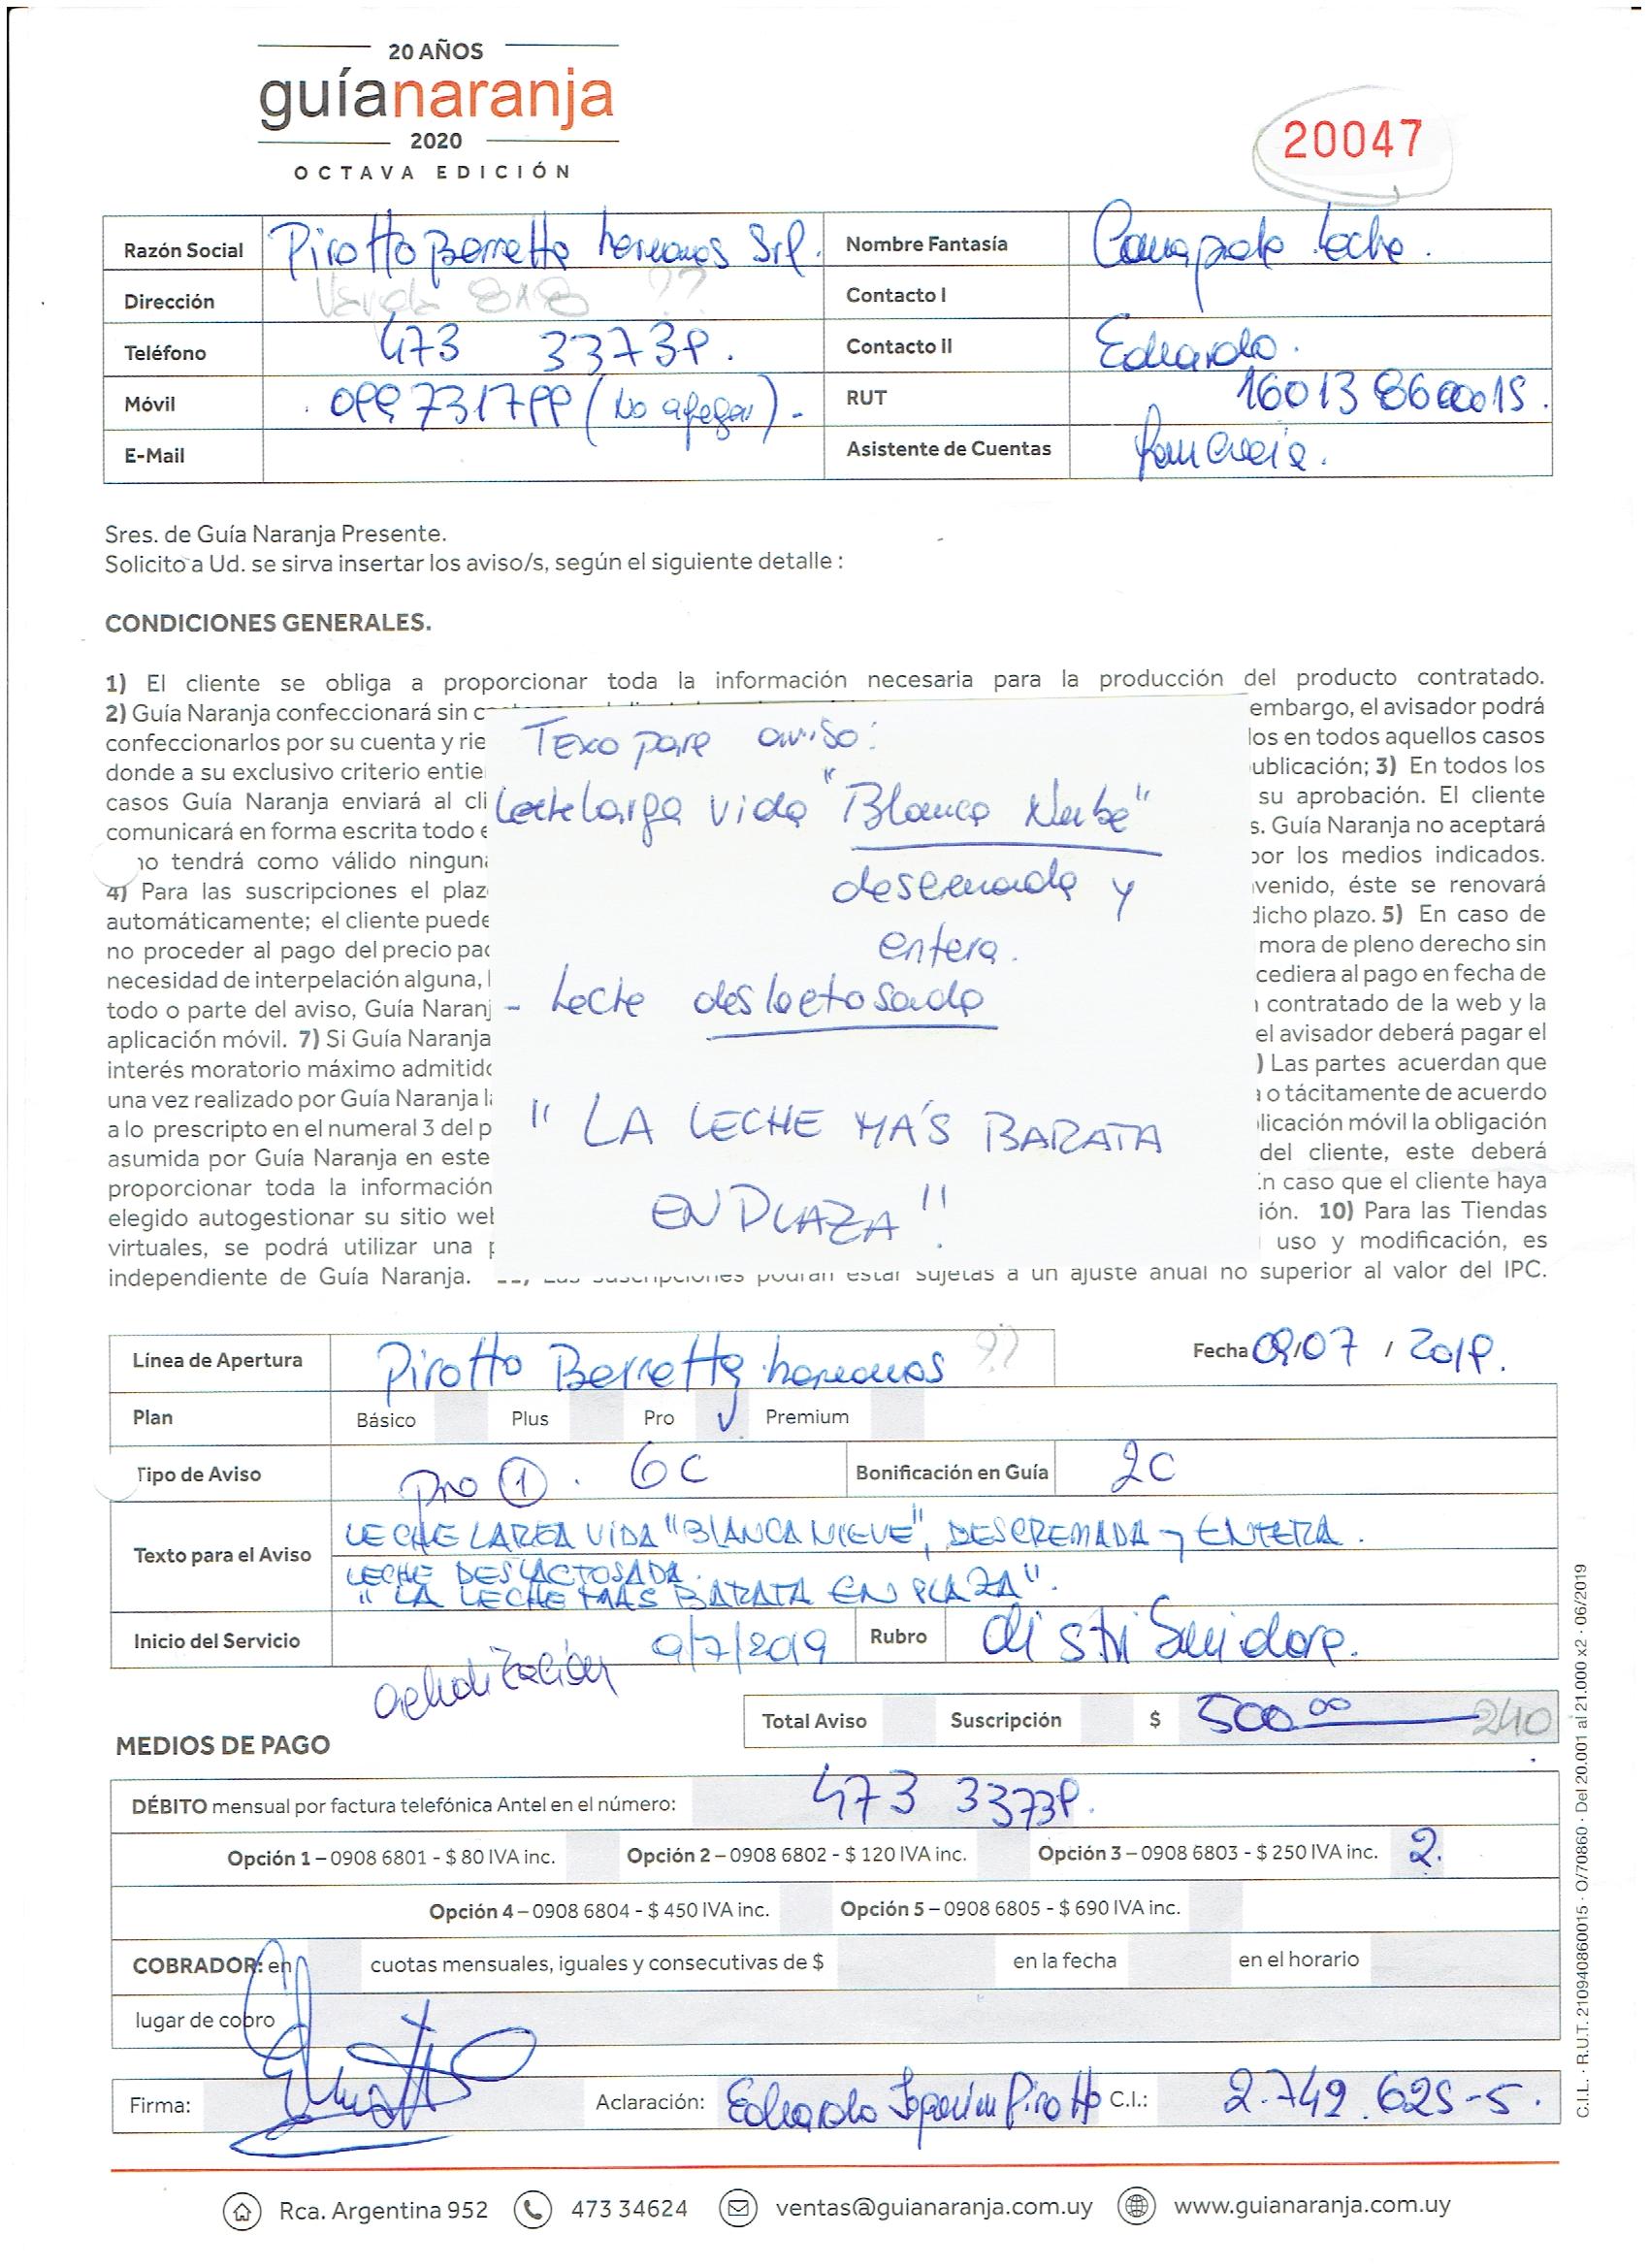 20 AÑOS
guíanaranja
2020
OCTAVA EDICIÓN
20047
Razón Social Pirotto Berretta hermanos Srl. Nombre Fantasía Leche.
Dirección 818 ?? Contacto I
Teléfono 473 33739. Contacto II Eduardo.
Móvil 099731799 (No agregar) - RUT 160138600015.
E-Mail Asistente de Cuentas
Sres. de Guía Naranja Presente.
Solicito a Ud. se sirva insertar los aviso/s, según el siguiente detalle :
CONDICIONES GENERALES.
1) El cliente se obliga a proporcionar toda la información necesaria para la producción del producto contratado.
2) Guía Naranja confeccionará sin embargo, el avisador podrá
confeccionarlos por su cuenta y rie los en todos aquellos casos
donde a su exclusivo criterio entie ublicación; 3) En todos los
casos Guía Naranja enviará al cli su aprobación. El cliente
comunicará en forma escrita todo s. Guía Naranja no aceptará
no tendrá como válido ningun por los medios indicados.
4) Para las suscripciones el plaz venido, éste se renovará
automáticamente; el cliente puede dicho plazo. 5) En caso de
no proceder al pago del precio pac mora de pleno derecho sin
necesidad de interpelación alguna, cediera al pago en fecha de
todo o parte del aviso, Guía Naranj contratado de la web y la
aplicación móvil. 7) Si Guía Naranja el avisador deberá pagar el
interés moratorio máximo admitido ) Las partes acuerdan que
una vez realizado por Guía Naranja la o tácitamente de acuerdo
a lo prescripto en el numeral 3 del p licación móvil la obligación
asumida por Guía Naranja en este del cliente, este deberá
proporcionar toda la información n caso que el cliente haya
elegido autogestionar su sitio web ión. 10) Para las Tiendas
virtuales, se podrá utilizar una p uso y modificación, es
independiente de Guía Naranja. 11) Las suscripciones podrán estar sujetas a un ajuste anual no superior al valor del IPC.
Texo para aviso:
Leche larga vida "Blanca Nube"
descremada y
entera.
- Leche deslactosada
" LA LECHE MÁS BARATA
EN PLAZA".
Línea de Apertura Pirotto Berretta hermanos ?? Fecha 09/07 / 2019.
Plan Básico Plus Pro ✓ Premium
Tipo de Aviso Pro 1 . 6C Bonificación en Guía 2C
Texto para el Aviso LECHE LARGA VIDA "BLANCA NIEVE", DESCREMADA y ENTERA.
LECHE DESLACTOSADA.
"LA LECHE MAS BARATA EN PLAZA".
Inicio del Servicio 9/7/2019 Rubro distribuidora.
Total Aviso Suscripción $ 500.00 240
MEDIOS DE PAGO
DÉBITO mensual por factura telefónica Antel en el número: 473 33739.
Opción 1 – 0908 6801 - $ 80 IVA inc. Opción 2 – 0908 6802 - $ 120 IVA inc. Opción 3 – 0908 6803 - $ 250 IVA inc. 2.
Opción 4 – 0908 6804 - $ 450 IVA inc. Opción 5 – 0908 6805 - $ 690 IVA inc.
COBRADOR: en cuotas mensuales, iguales y consecutivas de $ en la fecha en el horario
lugar de cobro
Firma: Aclaración: Eduardo Joaquin Pirotto C.I.: 2.742.625-5.
C.I.L. · R.U.T. 210940860015 · O/70860 · Del 20.001 al 21.000 x2 · 06/2019
Rca. Argentina 952 473 34624 ventas@guianaranja.com.uy www.guianaranja.com.uy